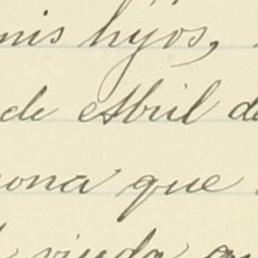 mis hijos,
de Abril de
que
viuda